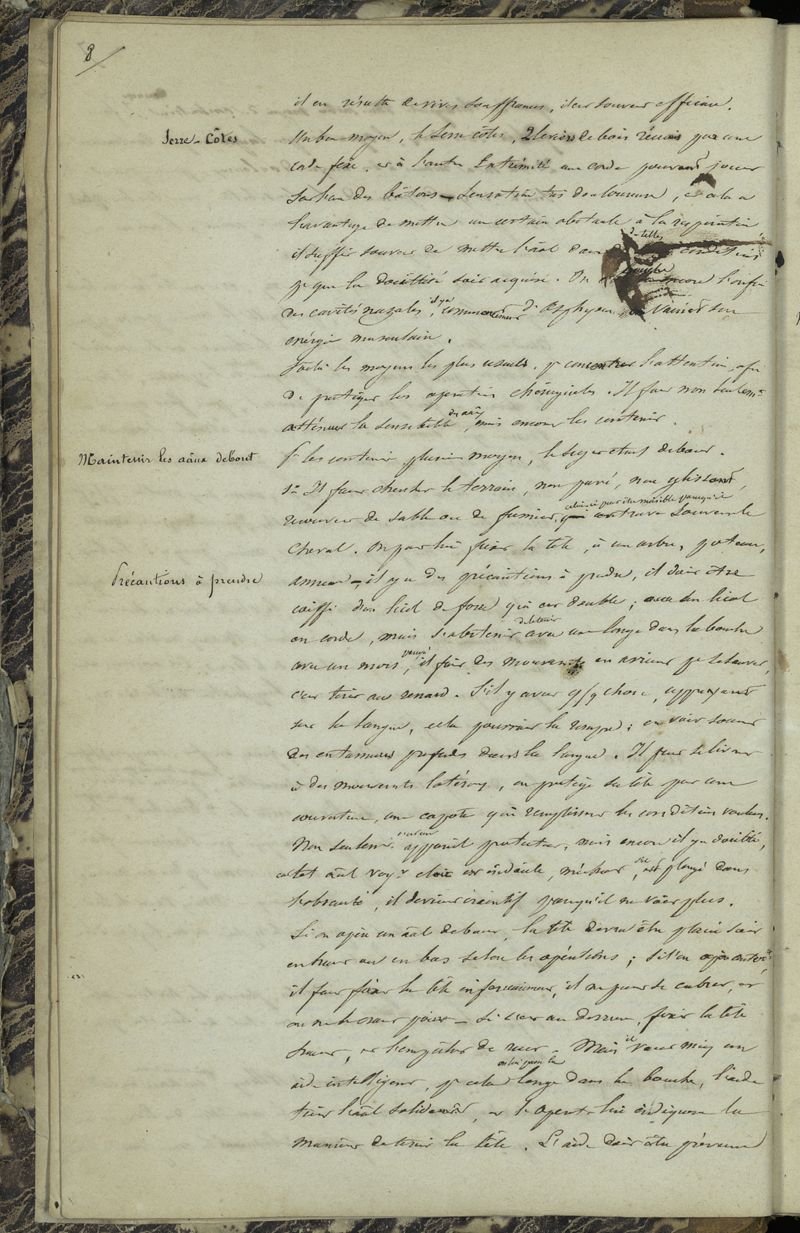 8
il en résulte de vives souffrances, il est souvent efficace.
Serre-Côtes
Un bon moyen, le serre côtes, 2 leviers de bois réunis par une
corde fixe, et à l'autre Extrémité une corde pouvant jouer
sur l'un des bâtons. Sensation très douloureuse, et cela a
l'avantage de mettre un certain obstacle à la respiration
il suffit souvent de mettre l'aâl dans de telles conditions
pr que la docilité soit acquise. On encore
des cavités nazales, il y a commencement d'asphyxie,
énergie musculaire.
Voilà les moyens les plus usuels, pr concentrer l'attention, afin
de pratiquer les opérations chirurgicales. Il faut non seulemt
atténuer la sensibilité des aâux, mais encore les contenir.
Maintenir les aâux debout
Pr les contenir plusieurs moyens, le sujet étant debout.
1° Il faut chercher le terrain, non pavé, non glissant,
recouvert de sable ou de fumier, celui-ci peut être nuisible parce qu'il entrave souvent le
cheval. On peut lui fixer la tête, à un arbre, poteau,
Précautions à prendre
anneau, il y a des précautions à prendre, il doit être
coiffé d'un licol de force qui est double; ou d'un licol
en corde, mais s'abstenir de le tenir avec une longe dans la bouche
avec un mors, parce qu'il fait des mouvements en arrière pr se sauver,
c'est tirer au renard. S'il y avait q/q chose, appuyant
sur la langue, cela pourrait la rompre; on voit souvent
des entamures profondes dans la langue. Il peut se livrer
à des mouvements latéraux, on protège sa tête par une
couverture, une capote qui remplissent les conditions voulues.
Non seulemt appareil protecteur, mais encore il y a docilité,
et tel aâl est indocile, méchant, est plongé dans
l'obscurité, il devient craintif parce qu'il ne voit plus.
Si on opère un aâl debout, la tête devra être placée soit
en haut ou en bas selon les opérations; si l'on
il faut fixer la tête inférieurement, il ne peut se cabrer, et
on ne le craint pas. Si c'est au derrière, fixer la tête
haut, et l'empêcher de ruer. Mais il vaut mieux un
aide intelligent, pr cela longe dans la bouche, l'aide
tient l'aâl solidement, et l'opérateur lui indiquera la
manière de tenir la tête. L'aide doit être prévenu